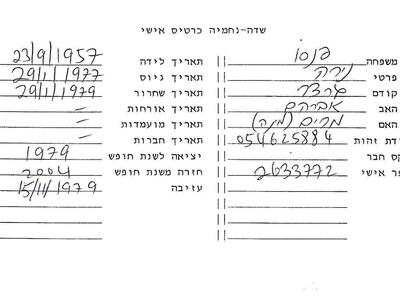 שדה-נחמיה כרטיס אישי
משפחה פנסו || תאריך לידה 23/9/1957
פרטי נירה || תאריך גיוס 29/1/1977
קודם || תאריך שחרור 29/1/1979
האב אברהם || תאריך אורחות -
האם מרים || תאריך מועמדות -
דת זהות 054625884 || תאריך חברות -
קס חבר || יציאה לשנת חופש 1979
פר אישי 2633772 || חזרה משנת חופש 2004
עזיבה 15/11/1979